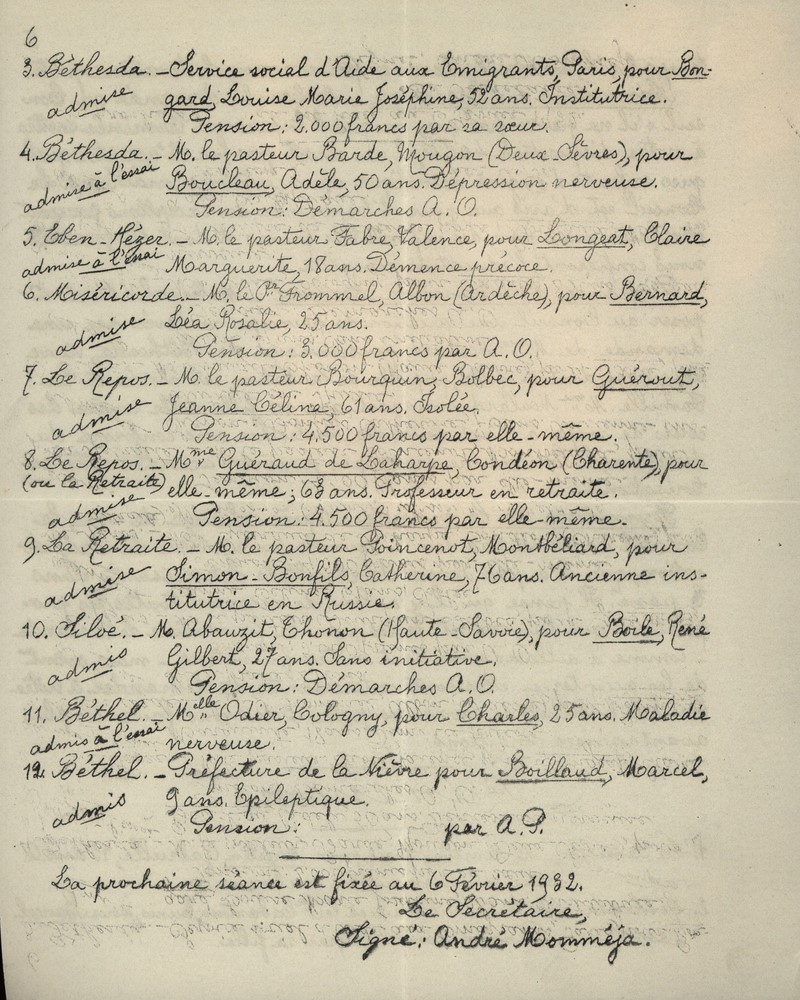 6
3. Béthesda. - Service social d'Aide aux Emigrants, Paris, pour Bon-
admise gard, Louise Marie Joséphine, 52 ans. Institutrice.
Pension: 2.000 francs par sa sœur.
4. Béthesda. - M. le pasteur Barde, Mougon (Deux-Sèvres), pour
admise à l'essai Boucleau, Adèle, 50 ans. Dépression nerveuse.
Pension: Démarches A. O.
5. Eben-Hézer. - M. le pasteur Fabre, Valence, pour Longeat, Claire
admise à l'essai Marguerite, 18 ans. Démence précoce.
6. Miséricorde. - M. le Pr Frommel, Albon (Ardèche), pour Bernard,
admise Léa Rosalie, 25 ans.
Pension: 3.000 francs par A. O.
7. Le Repos. - M. le pasteur Bourquin, Bolbec, pour Guérout,
admise Jeanne Céline, 61 ans. Isolée.
Pension: 4.500 francs par elle-même.
8. Le Repos. - Mme Guéraud de Laharpe, Condéon (Charente), pour
(ou la Retraite) elle-même; 63 ans. Professeur en retraite.
admise Pension: 4.500 francs par elle-même.
9. La Retraite. - M. le pasteur Poincenot, Montbéliard, pour
admise Simon-Bonfils, Catherine, 76 ans. Ancienne ins-
titutrice en Russie.
10. Siloé. - M. Abauzit, Thonon (Haute-Savoie), pour Boile, René
admis Gilbert, 27 ans. Sans initiative.
Pension: Démarches A. O.
11. Béthel. - Melle Odier, Cologny, pour Charles, 25 ans. Maladie
admis à l'essai nerveuse.
12. Béthel. - Préfecture de la Nièvre pour Boillaud, Marcel,
admis 9 ans. Epileptique.
Pension: par A. P.
La prochaine séance est fixée au 6 Février 1932.
Le Secrétaire,
Signé: André Momméja.